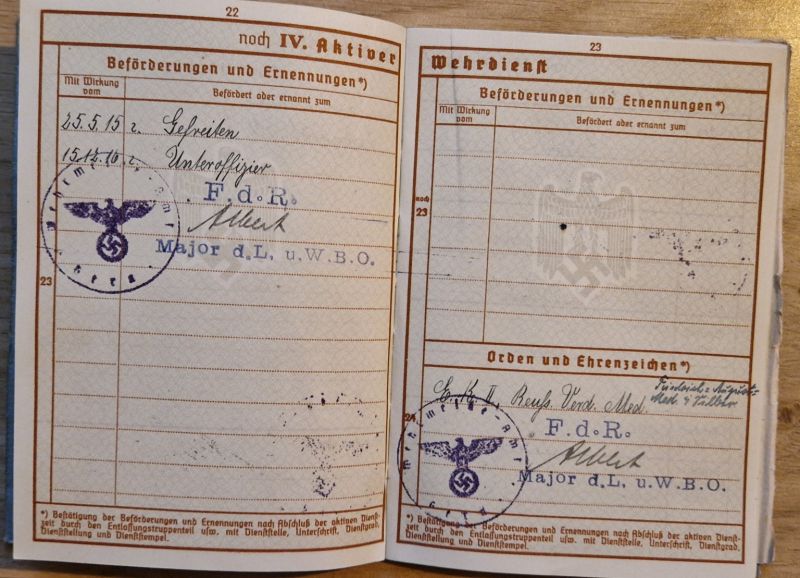 22
noch IV. Aktiver
Beförderungen und Ernennungen*)
Mit Wirkung vom
Befördert oder ernannt zum
25.5.15 z. Gefreiten
15.12.16 z. Unteroffizier
F.d.R.
Albert
Major d.L. u.W.B.O.
Wehrmelde-Amt
Gera
23
*) Bestätigung der Beförderungen und Ernennungen nach Abschluß der aktiven Dienst-
zeit durch den Entlassungstruppenteil usw. mit Dienststelle, Unterschrift, Dienstgrad,
Dienststellung und Dienststempel.
23
Wehrdienst
Beförderungen und Ernennungen*)
Mit Wirkung vom
Befördert oder ernannt zum
noch
23
Orden und Ehrenzeichen*)
E. K. II. Reuß. Verd. Med. Friedrich-August-
Med. i. Silber
24
F.d.R.
Albert
Major d.L. u.W.B.O.
Wehrmelde-Amt
Gera
*) Bestätigung der Beförderungen und Ernennungen nach Abschluß der aktiven Dienst-
zeit durch den Entlassungstruppenteil usw. mit Dienststelle, Unterschrift, Dienstgrad,
Dienststellung und Dienststempel.